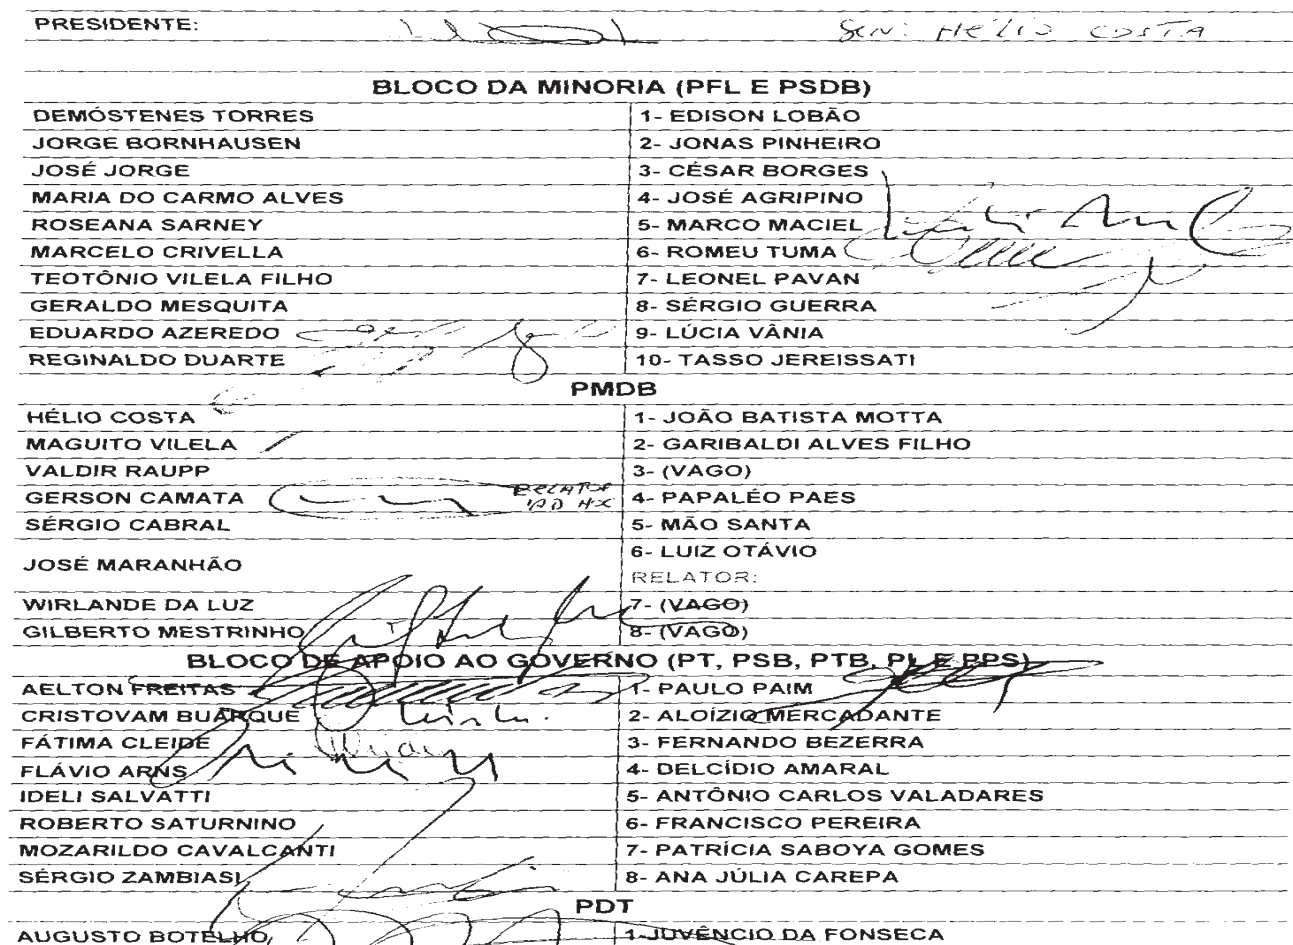 PRESIDENTE: SEN. HÉLIO COSTA
BLOCO DA MINORIA (PFL E PSDB)
DEMÓSTENES TORRES 1- EDISON LOBÃO
JORGE BORNHAUSEN 2- JONAS PINHEIRO
JOSÉ JORGE 3- CÉSAR BORGES
MARIA DO CARMO ALVES 4- JOSÉ AGRIPINO
ROSEANA SARNEY 5- MARCO MACIEL
MARCELO CRIVELLA 6- ROMEU TUMA
TEOTÔNIO VILELA FILHO 7- LEONEL PAVAN
GERALDO MESQUITA 8- SÉRGIO GUERRA
EDUARDO AZEREDO 9- LÚCIA VÂNIA
REGINALDO DUARTE 10- TASSO JEREISSATI
PMDB
HÉLIO COSTA 1- JOÃO BATISTA MOTTA
MAGUITO VILELA 2- GARIBALDI ALVES FILHO
VALDIR RAUPP 3- (VAGO)
GERSON CAMATA RELATOR 4- PAPALÉO PAES
AD HX
SÉRGIO CABRAL 5- MÃO SANTA
JOSÉ MARANHÃO 6- LUIZ OTÁVIO
RELATOR:
WIRLANDE DA LUZ 7- (VAGO)
GILBERTO MESTRINHO 8- (VAGO)
BLOCO DE APOIO AO GOVERNO (PT, PSB, PTB, PL E PPS)
AELTON FREITAS 1- PAULO PAIM
CRISTOVAM BUARQUE 2- ALOÍZIO MERCADANTE
FÁTIMA CLEIDE 3- FERNANDO BEZERRA
FLÁVIO ARNS 4- DELCÍDIO AMARAL
IDELI SALVATTI 5- ANTÔNIO CARLOS VALADARES
ROBERTO SATURNINO 6- FRANCISCO PEREIRA
MOZARILDO CAVALCANTI 7- PATRÍCIA SABOYA GOMES
SÉRGIO ZAMBIASI 8- ANA JÚLIA CAREPA
PDT
AUGUSTO BOTELHO 1-JUVÊNCIO DA FONSECA